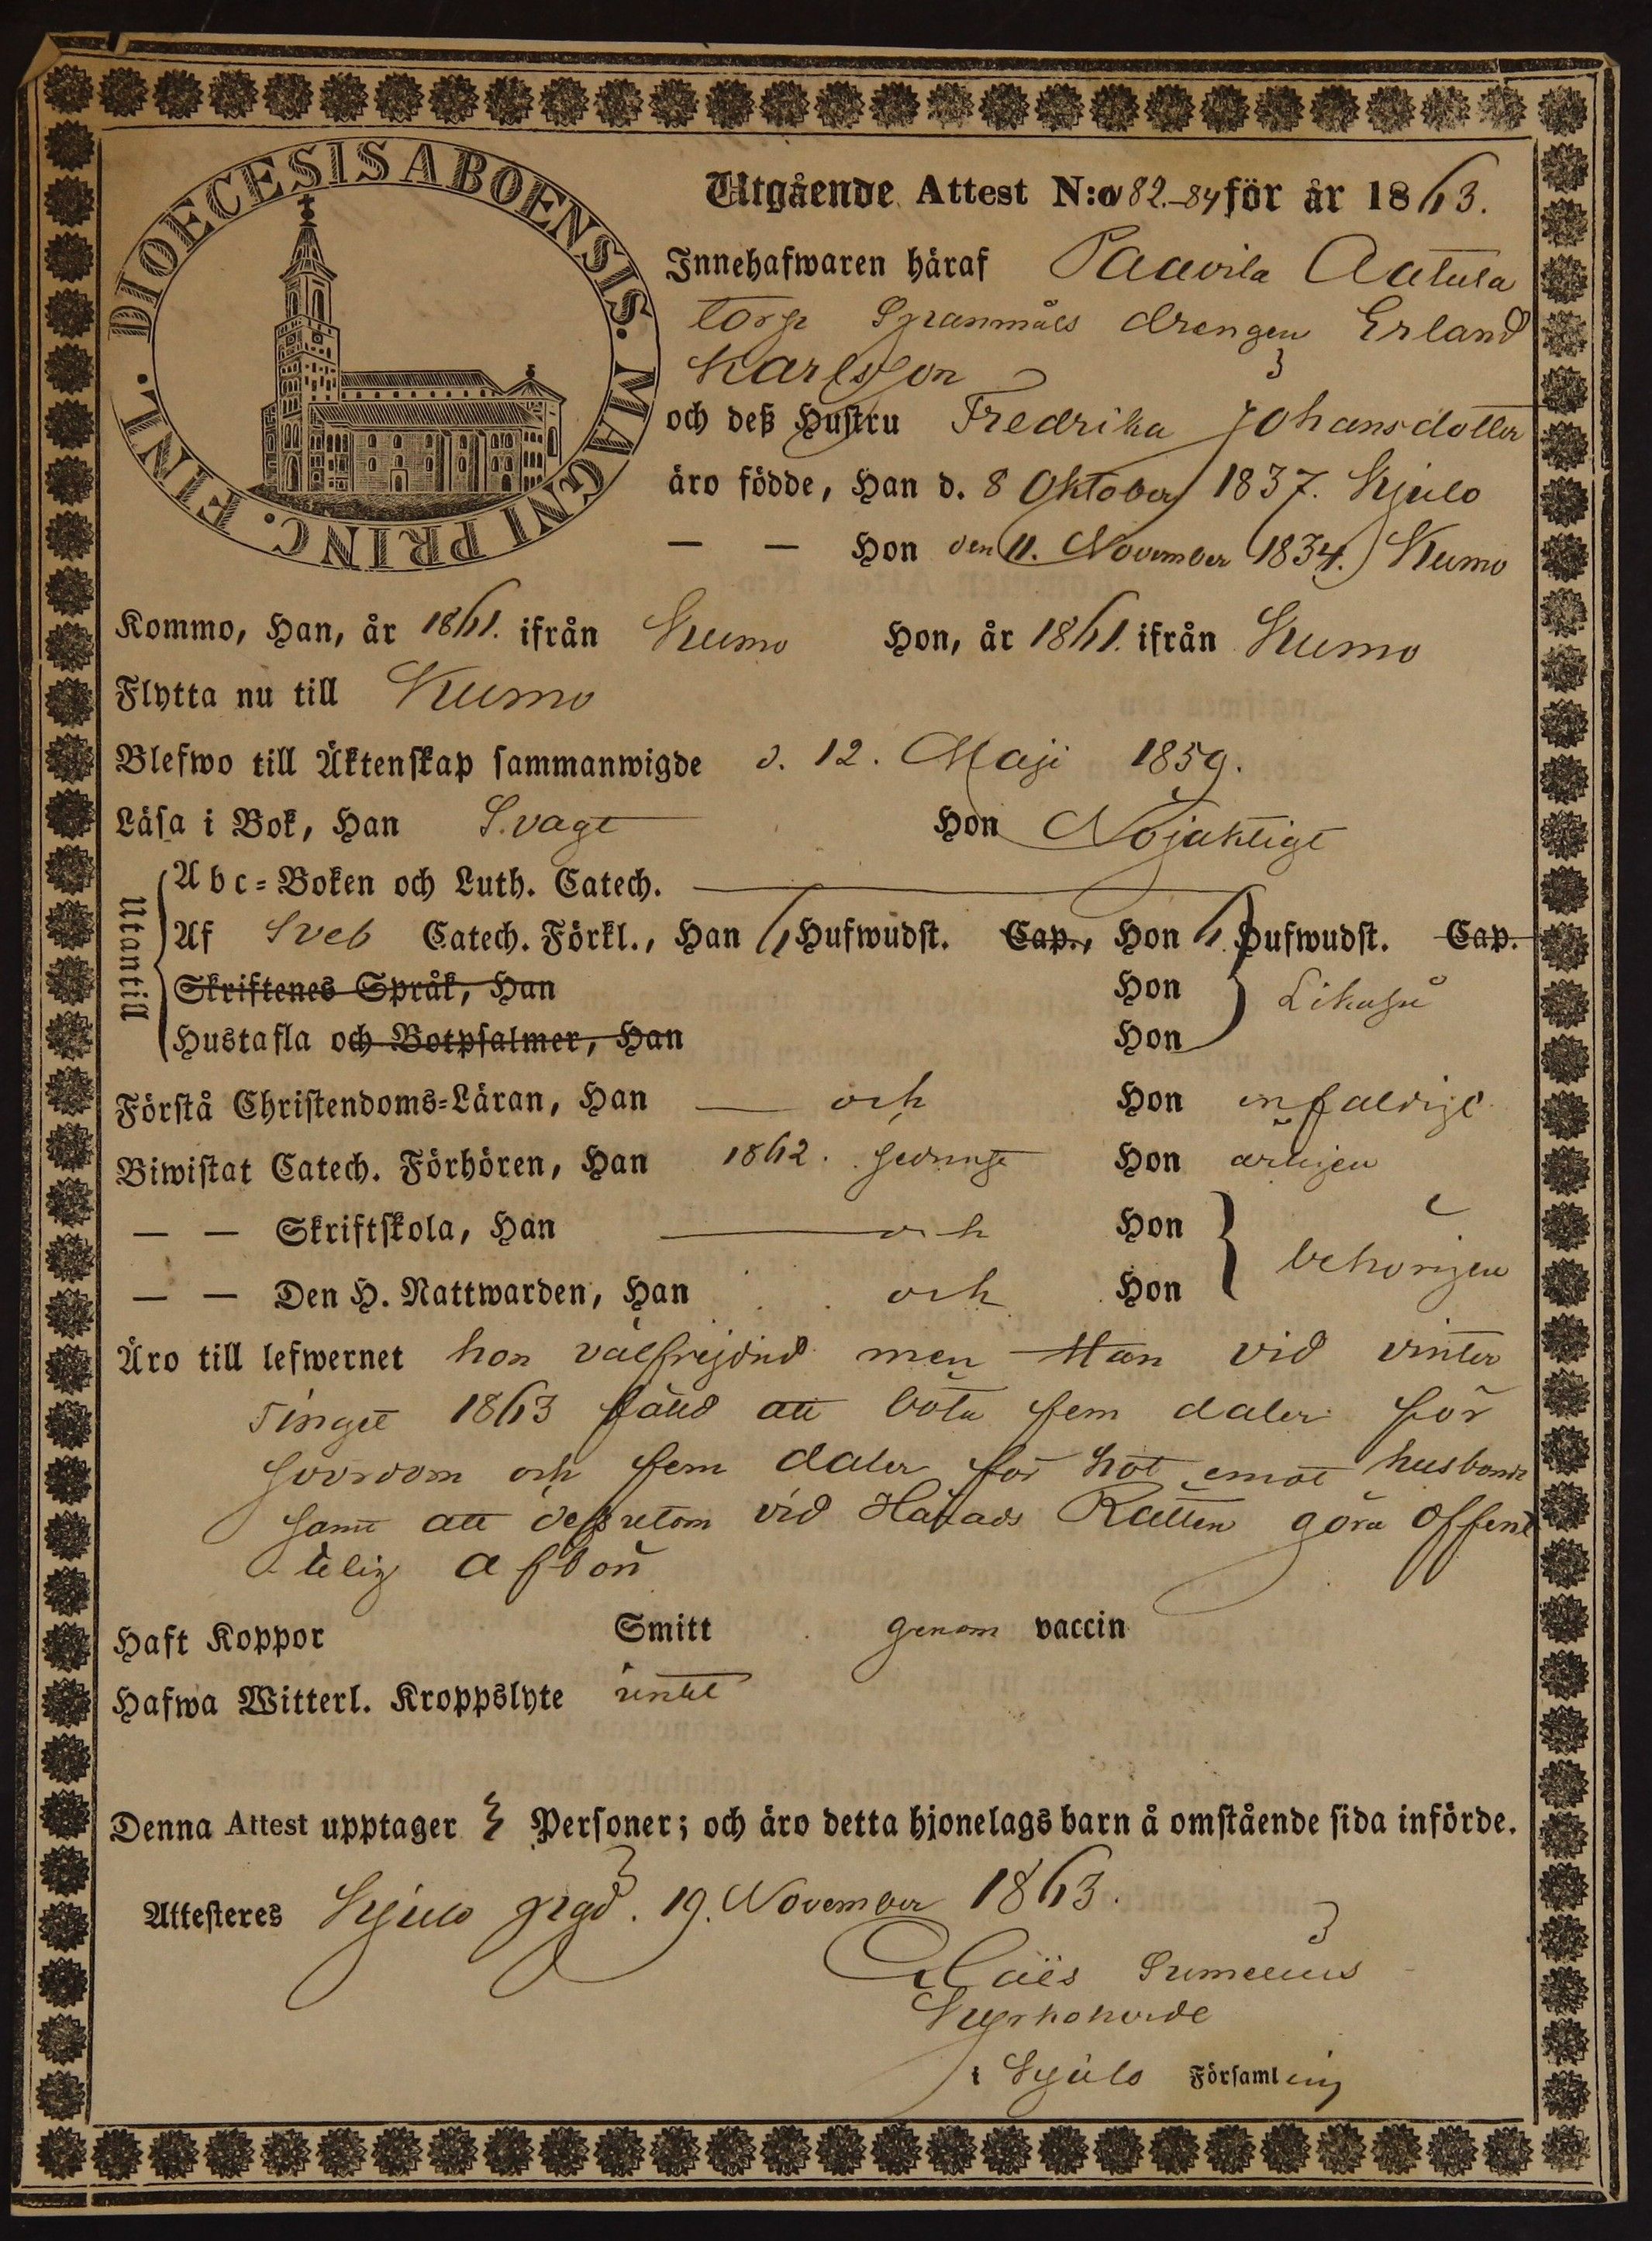 DIOECESIS ABOENSIS. MAGNI PRINC. FINL.
Utgående Attest N:o 82.-84 för år 1863.
Innehafwaren häraf Paavila Aatula
torp Spanmåls drengen Erland
Karlsson
och deß Hustru Fredrika Johansdotter
äro födde, Han d. 8 Oktober 1837. Kjulo
— — Hon den 11. November 1834. Kumo
Kommo, Han, år 1861. ifrån Kumo Hon, år 1861. ifrån Kumo
Flytta nu till Kumo
Blefwo till Äktenskap sammanwigde d. 12. Maji 1859.
Läsa i Bok, Han Svagt Hon Nöjaktigt
Utantill
Abc-Boken och Luth. Catech.
Af Sveb Catech. Förkl., Han 6 Hufwudst. Cap., Hon 6 Hufwudst. Cap.
Skriftenes Språk, Han Hon Likaså
Hustafla och Botpsalmer, Han Hon
Förstå Christendoms-Läran, Han — och Hon enfaldigt
Biwistat Catech. Förhören, Han 1862. Hon årligen
— — Skriftskola, Han — och Hon
— — Den H. Nattwarden, Han och Hon behörigen
Äro till lefwernet hon välfrejdad men Han vid vinter
Tinget 1863 fälld att böta fem daler för
fem daler för hot emot husbonde
samt att dessutom vid Härads Rätten göra offent
telig afbön
Haft Koppor Smitt genom vaccin
Hafwa Witterl. Kroppslyte intet
Denna Attest upptager 3 Personer; och äro detta hjonelags barn å omstående sida införde.
Attesteres Kjulo pgd. 19. November 1863.
Claës
Kyrkoherde
i Kjulo Församling